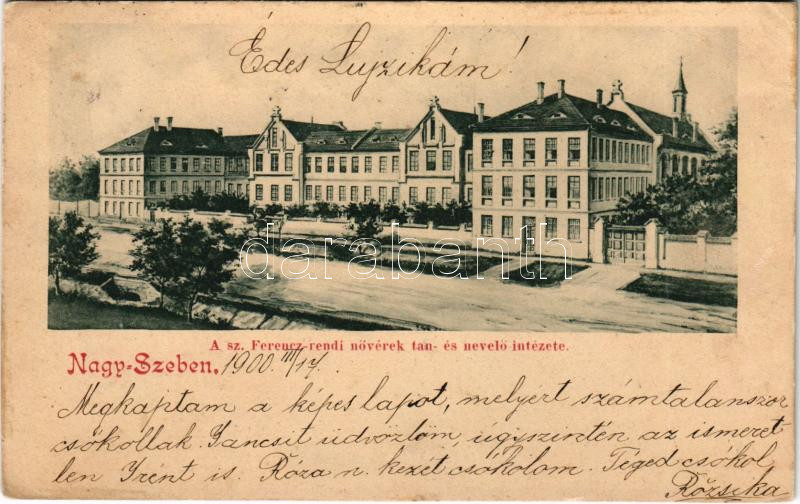 Édes Lujzikám!
darabanth
A sz. Ferencz-rendi nővérek tan- és nevelő intézete.
Nagy-Szeben. 1900. III/17.
Megkaptam a képes lapot, melyert számtalanszor
csókollak. Jancsit üdvözlöm, úgyszintén az ismeret
len Irént is. Róza n. kezét csókolom. Téged csókol
Rózsika